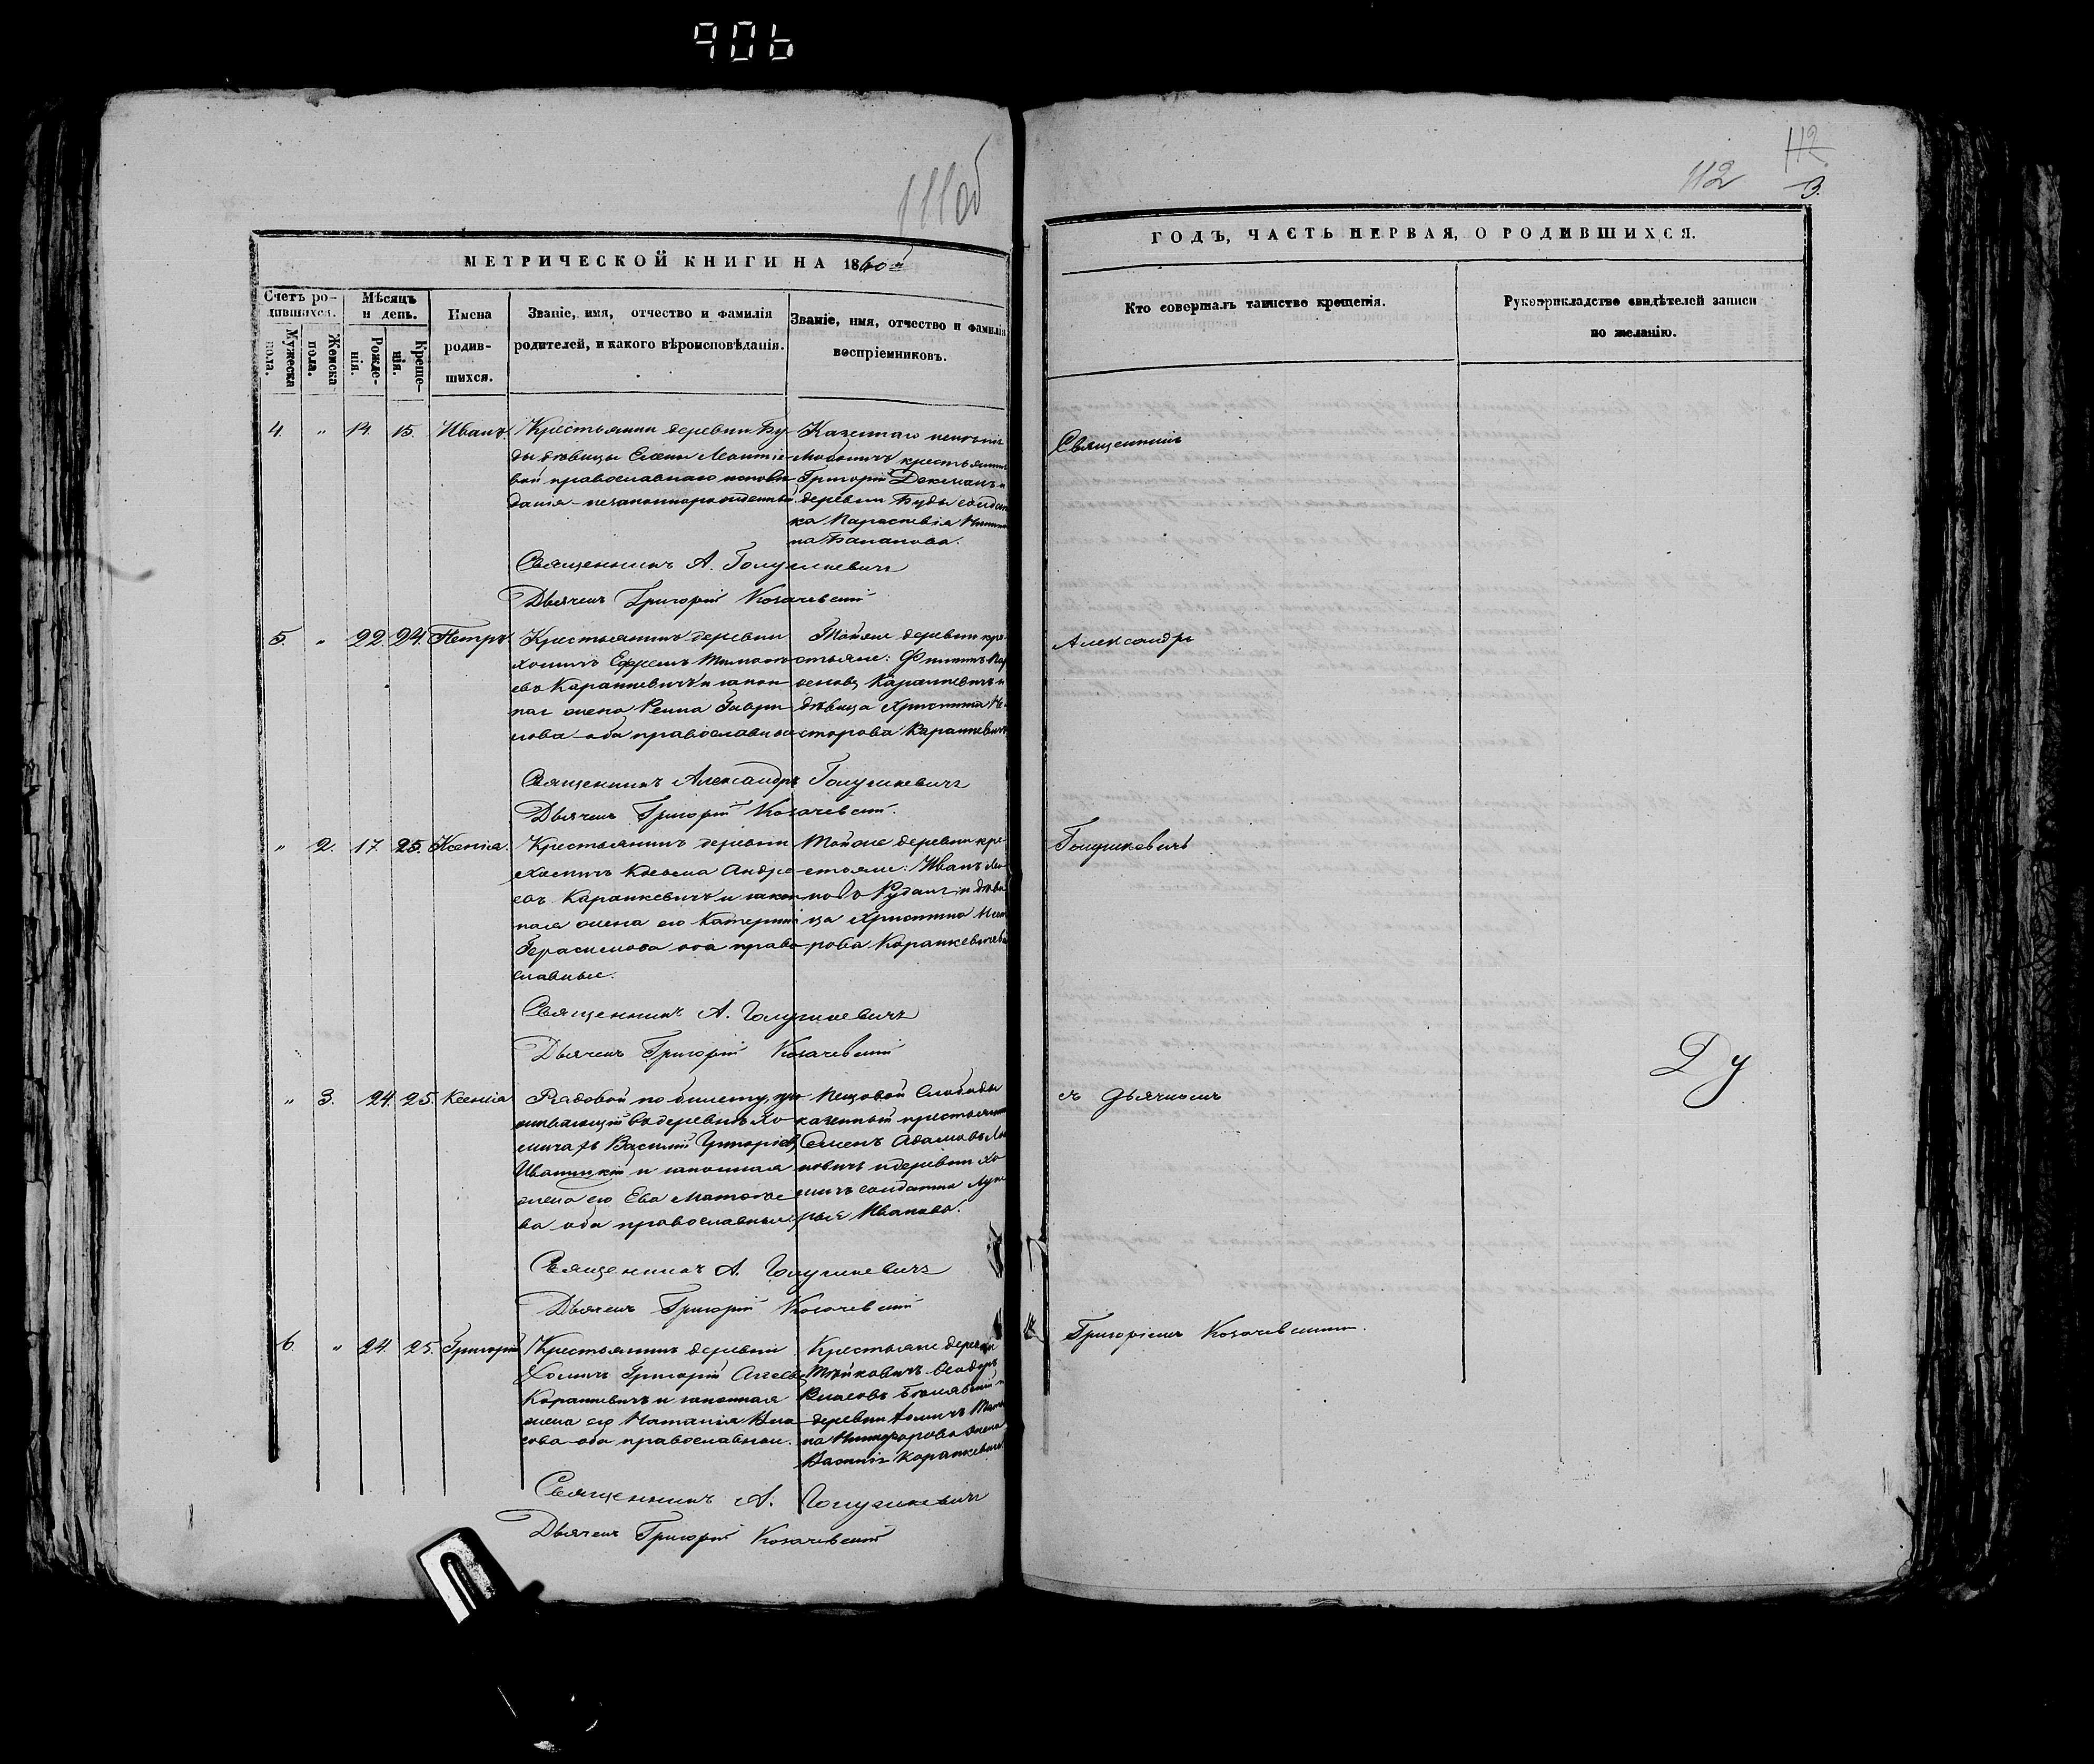 906
111 об
МЕТРИЧЕСКОЙ КНИГИ НА 1860 й
Счетъ ро-
дившихся.
Мужеска
пола.
Женска
пола.
Мѣсяцъ
и день.
Рожде-
нія.
Креще-
нія.
Имена
родив-
шихся.
Званіе, имя, отчество и фамилія
родителей, и какого вѣроисповѣданія.
Званіе, имя, отчество и фамилія
воспріемниковъ.
4. " 14. 15. Иванъ.
Крестьянки деревни Бу-
ды дѣвицы Елены
православнаго исповѣ-
данія – незаконнорожденный
Казеннаго
крестьянинъ
Григорій
деревни Буды солдат
ка Параскевія
Священникъ А. Голушкевичъ
Дьячекъ Григорій Козачевскій
5. " 22. 24. Петръ.
Крестьянинъ деревни
Хомичъ Ефремъ
евъ Каранкевичъ и закон
ная жена
оба православные
Той же деревни кре-
стьяне: Филиппъ
Каранкевичъ и
дѣвица Христина Не
сторова Каранкевичъ
Священникъ Александръ Голушкевичъ
Дьячекъ Григорій Козачевскій.
" 2. 17. 25. Ксенія.
Крестьянинъ деревни
Хомичъ Козьма Андре-
евъ Каранкевичъ и закон
ная жена его Катерина
Герасимова оба право
славные.
Той же деревни кре-
стьяне: Иванъ
и дѣви
ца Христина Нест
рова Каранкевичева
Священникъ А. Голушкевичъ
Дьячекъ Григорій Козачевскій
" 3. 24. 25. Ксенія
Рядовой по билету, про
живающій въ деревнѣ Хо
мичахъ Василій Григоріев
и законная
жена его Ева Матвѣе
ва оба православные
Слободы
казенный крестьянинъ
Семенъ Адамовъ
и деревни Хо
мичъ солдатка Луке
рья Иванова.
Священникъ А. Голушкевичъ
Дьячекъ Григорій Козачевскій
6. " 24. 25. Григорій
Крестьянинъ деревни
Хомичъ Григорій
Каранкевичъ и законная
жена его Наталія Вла
сова оба православные.
Крестьяне деревни
Власовъ
деревни Хомичъ
на Никифорова жена
Василія Каранкевича
Священникъ А. Голушкевичъ
Дьячекъ Григорій Козачевскій
112
112
3.
ГОДЪ, ЧАСТЬ ПЕРВАЯ, О РОДИВШИХСЯ.
Кто совершалъ таинство крещенія.
Рукоприкладство свидѣтелей записи
по желанію.
Священникъ
Александръ
Голушкевичъ
съ Дьячкомъ
Григоріемъ Козачевскимъ.
Ду